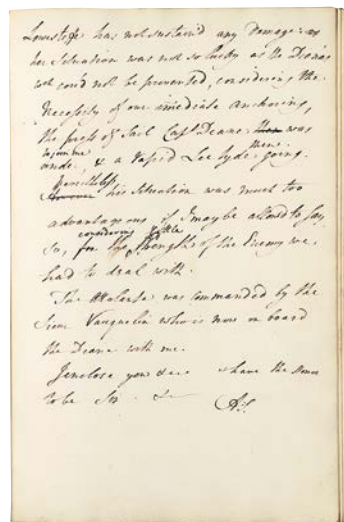 Lowestoffe has not sustain'd any Damage: as
her Situation was not so lucky as the Diana's
wch could not be prevented, considering the
Necessity of our imediate anchoring,
the press of Sail Capt. Deane was
to join me there
under, & a rapid Lee tyde going.
Nevertheless
his Situation was much too
advantageous if I may be allowed to say
considering little
so, for the strength of the Enemy we
had to deal with.
The Atalante was commanded by the
Sieur Vauquelin who is now on board
the Diana with me.
I enclose you &ca & have the Honor
to be Sir &c
AS.